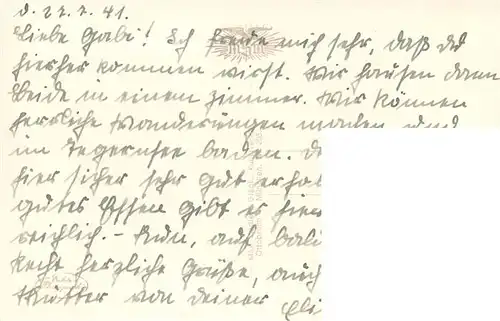 d. 22.7.41.
Liebe Gabi! Ich freue mich sehr, daß du
hierher kommen wirst. Wir hausen dann
beide in einem Zimmer. Wir können
herrliche Wanderungen machen und
im Tegernsee baden. D
hier sicher sehr gut erhol
gutes Essen gibt es hier
reichlich. – Nun, auf bal
Recht herzliche Grüße, auch
Mutter von deiner Eli